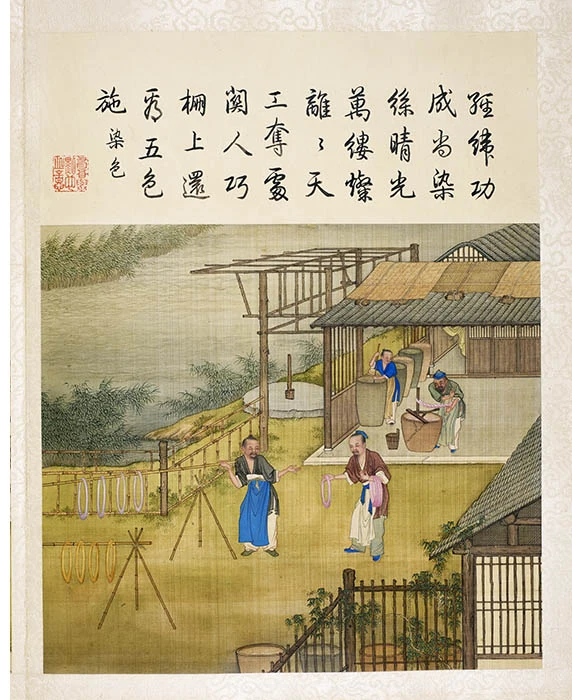 經緯功
成尚染
絲晴光
萬縷燦
離〻天
工奪處
關人巧
棚上還
看五色
施
染色